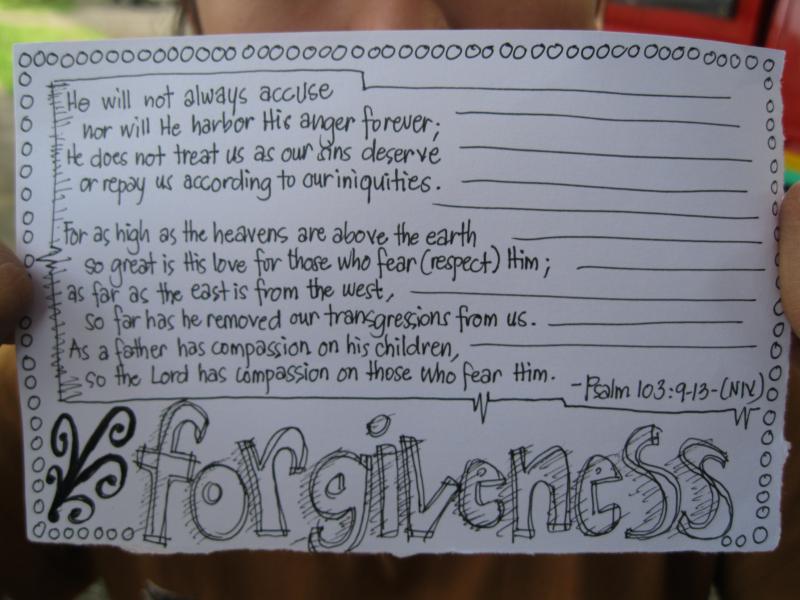 He will not always accuse
nor will He harbor His anger forever;
He does not treat us as our sins deserve
or repay us according to our iniquities.
For as high as the heavens are above the earth
so great is His love for those who fear (respect) Him;
as far as the east is from the west,
so far has he removed our transgressions from us.
As a father has compassion on his children,
so the Lord has compassion on those who fear Him.
-Psalm 103:9-13-(NIV)
forgiveness